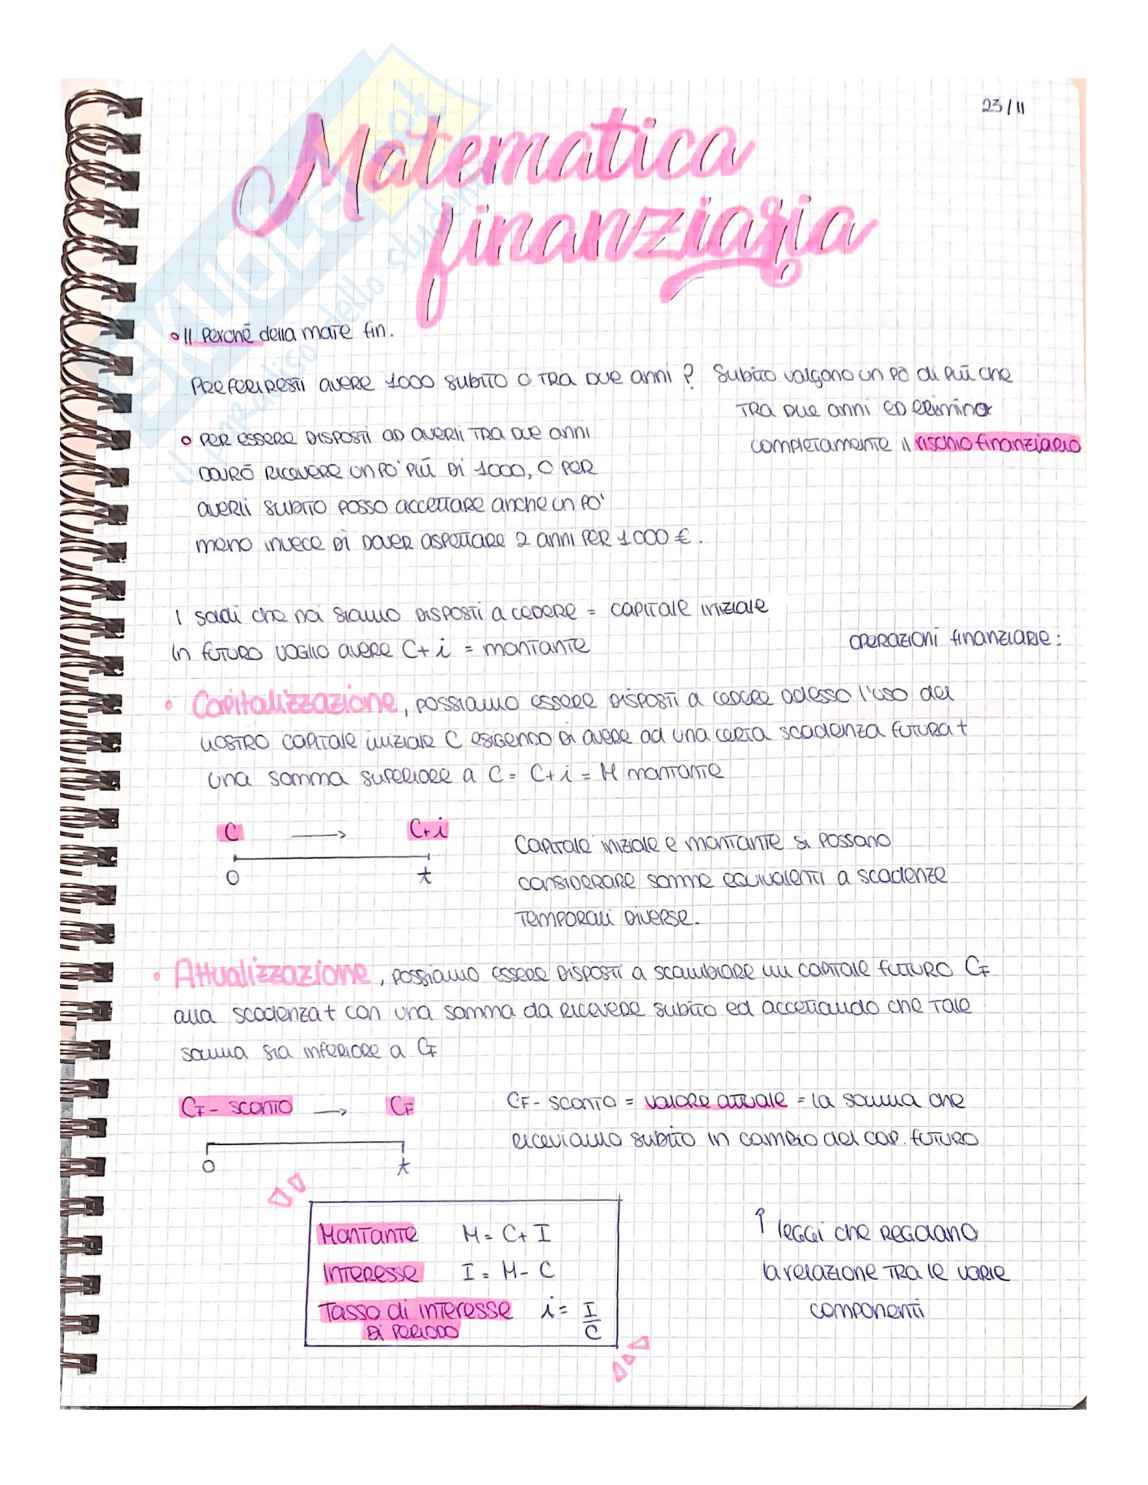 23/11
Matematica
finanziaria
• Il Perché della mate fin.
PREFERIRESTI AVERE 1000 SUBITO O TRA DUE anni ? SUBITO valgono un pò di PIÙ che
TRA DUE anni ED elimino
completamente il rischio finanziario
• PER ESSERE DISPOSTI AD AVERLI TRA DUE anni
DOVRÒ RICEVERE UN PO' PIÙ DI 1000, O PER
averli SUBITO POSSO accettare anche un PO'
meno invece DI DOVER ASPETTARE 2 anni PER 1000 €.
I soldi che noi siamo DISPOSTI a cedere = CAPITALE INIZIALE
In FUTURO VOGLIO avere C + i = MONTANTE
OPERAZIONI FINANZIARIE :
• Capitalizzazione, POSSIAMO ESSERE DISPOSTI a cedere adesso l'uso del
NOSTRO CAPITALE INIZIALE C ESIGENDO DI AVERE AD UNA CERTA SCADENZA FUTURA t
UNA SOMMA SUPERIORE a C = C + i = M MONTANTE
C → C+i
0 t
CAPITALE INIZIALE e MONTANTE si POSSONO
CONSIDERARE SOMME EQUIVALENTI a SCADENZE
TEMPORALI DIVERSE.
• Attualizzazione, POSSIAMO ESSERE DISPOSTI a SCAMBIARE UN CAPITALE FUTURO CF
alla SCADENZA t con una SOMMA da RICEVERE SUBITO ed accettando che TALE
SOMMA SIA INFERIORE a CF
CF - SCONTO → CF
0 t
CF - SCONTO = VALORE ATTUALE = la SOMMA che
RICEVIAMO SUBITO in cambio del cap. FUTURO
MONTANTE M = C + I
INTERESSE I = M - C
TASSO di INTERESSE i = I/C
DI PERIODO
↑ leggi che REGOLANO
la relazione TRA le VARIE
componenti